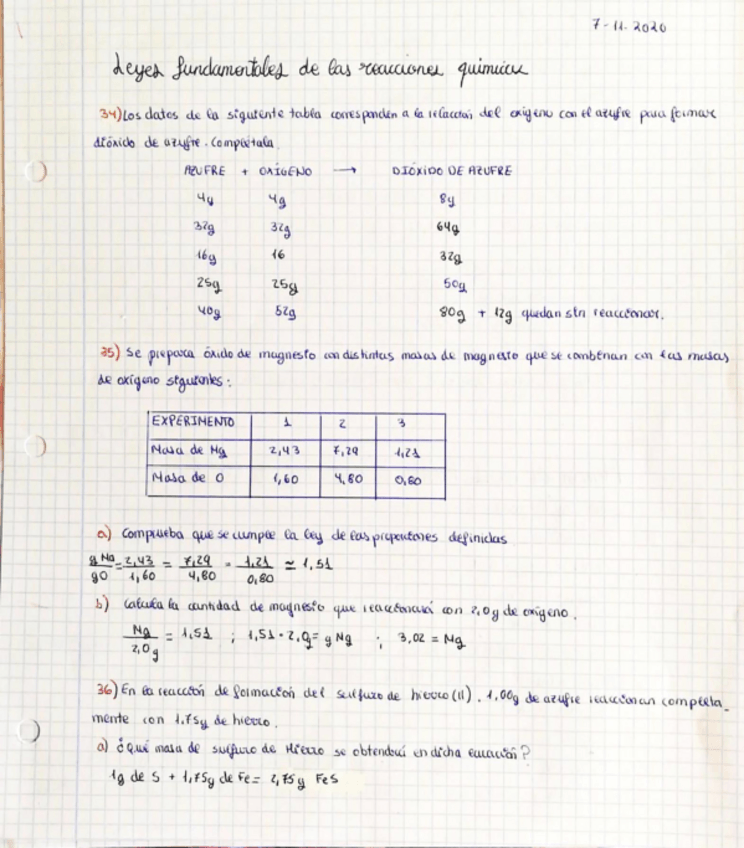 7-11-2020
Leyes fundamentales de las reacciones químicas
34) Los datos de la siguiente tabla corresponden a la relación del oxígeno con el azufre para formar
dióxido de azufre. Complétala.
AZUFRE + OXÍGENO → DIÓXIDO DE AZUFRE
4g 4g 8g
32g 32g 64g
16g 16 32g
25g 25g 50g
40g 52g 80g + 12g quedan sin reaccionar.
35) Se prepara óxido de magnesio con distintas masas de magnesio que se combinan con las masas
de oxígeno siguientes:
EXPERIMENTO 1 2 3
Masa de Mg 2,43 7,29 1,21
Masa de O 1,60 4,80 0,80
a) Comprueba que se cumple la ley de las proporciones definidas
g Mg / g O = 2,43 / 1,60 = 7,29 / 4,80 = 1,21 / 0,80 ≃ 1,51
b) Calcula la cantidad de magnesio que reaccionará con 2,0g de oxígeno.
Mg / 2,0g = 1,51 ; 1,51 · 2,0= g Mg ; 3,02 = Mg
36) En la reacción de formación del sulfuro de hierro (II), 1,00g de azufre reaccionan completa_
mente con 1,75g de hierro.
a) ¿Qué masa de sulfuro de Hierro se obtendrá en dicha ecuación?
1g de S + 1,75g de Fe = 2,75g FeS